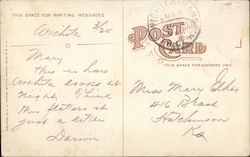 THIS SPACE FOR WRITING MESSAGES
POST CARD
THIS SPACE FOR ADDRESS ONLY
Wichita 3/20
Mary
this is how
Wichita looks at
night, I think
this flatters it
just a little
Darwin
Miss Mary
416 B East
Hutchinson
Ks